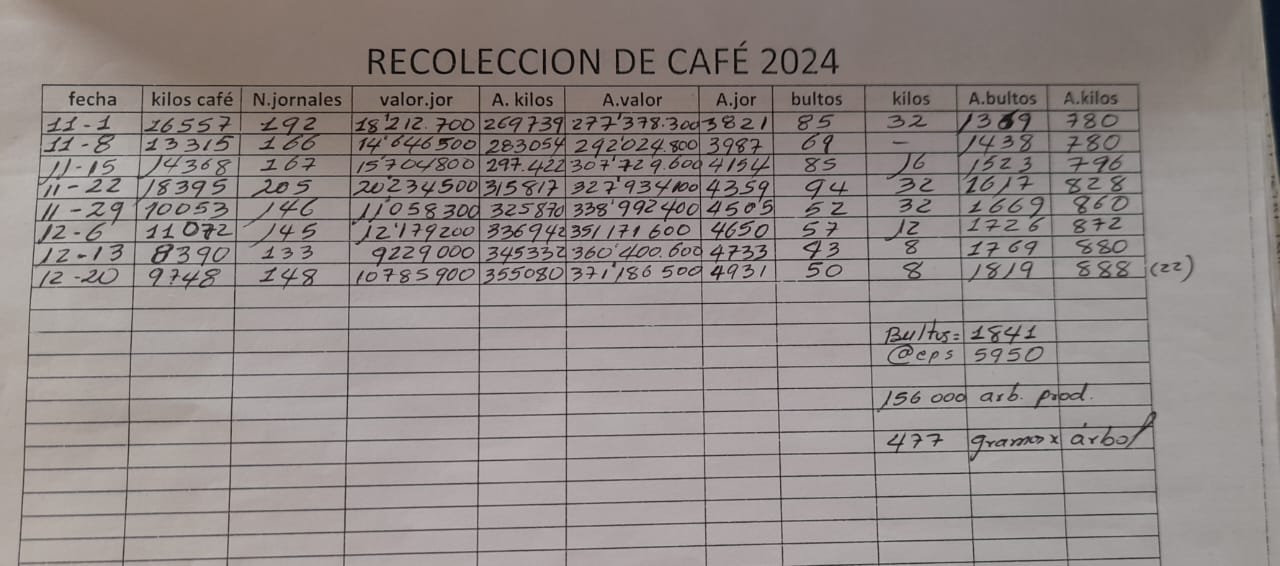 RECOLECCION DE CAFÉ 2024
fecha kilos café N.jornales valor.jor A. kilos A.valor A.jor bultos kilos A.bultos A.kilos
11-1 16557 192 18'212.700 269739 277'378.300 3821 85 32 1369 780
11-8 13315 166 14'646500 283054 292'024.800 3987 69 - 1438 780
11-15 14368 167 15'704800 297.422 307'729.600 4154 85 16 1523 796
11-22 18395 205 20'234500 315817 327'934100 4359 94 32 1617 828
11-29 10053 146 11'058300 325870 338'992400 4505 52 32 1669 860
12-6 11072 145 12'179200 336942 351'171600 4650 57 12 1726 872
12-13 8390 133 9229000 345332 360'400.600 4733 43 8 1769 880
12-20 9748 148 10785900 355080 371'186500 4931 50 8 1819 888 (22)
Bultos= 1841
@cps 5950
156000 arb. prod.
477 gramos x árbol